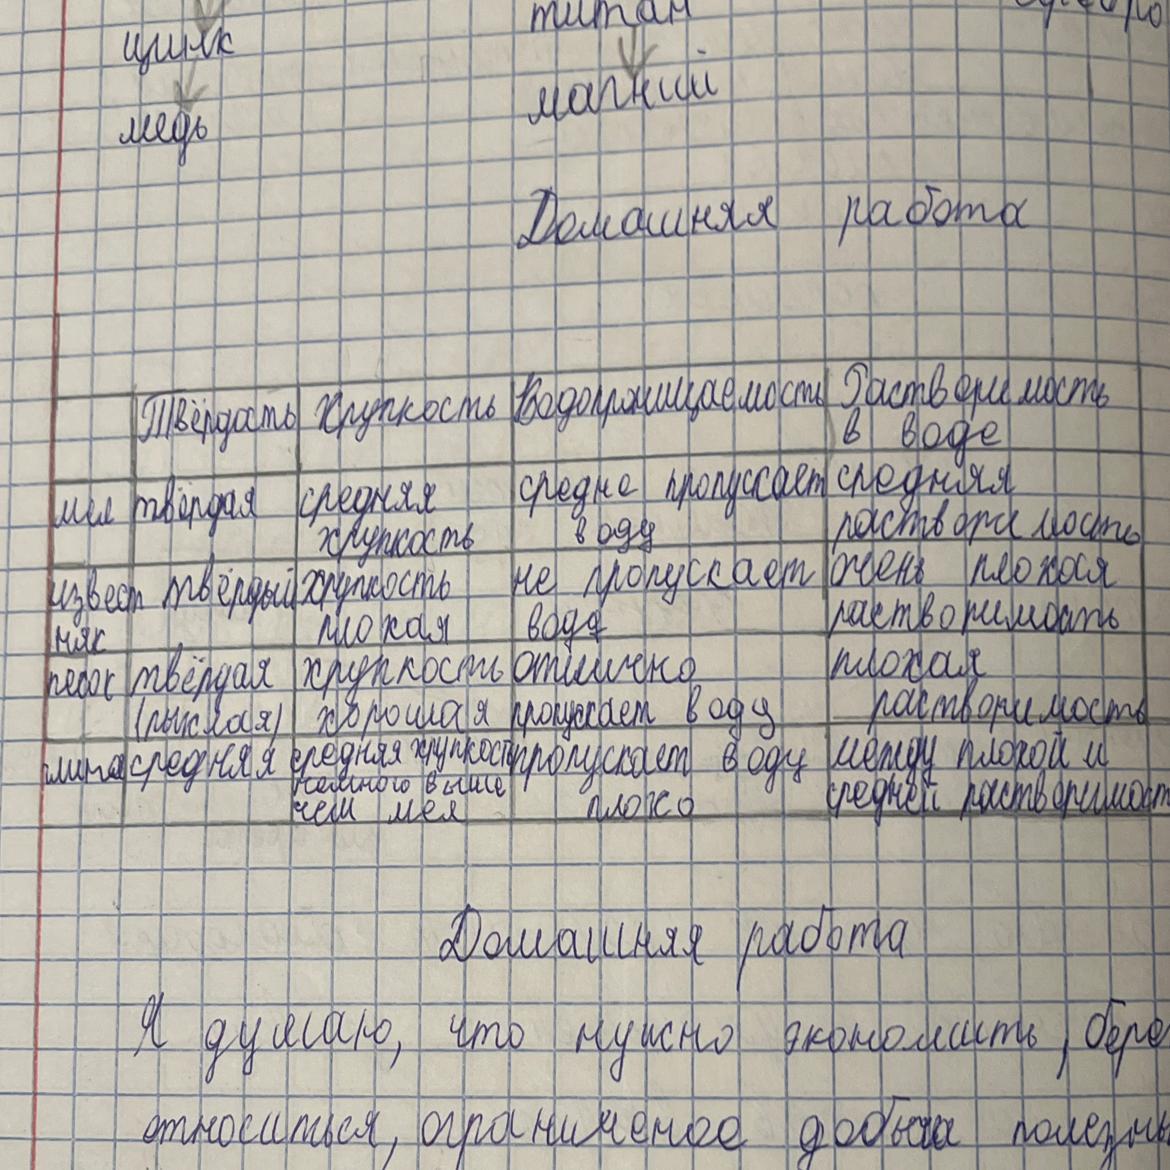 титан
цинк
магний
медь
Домашняя работа
Твёрдость Хрупкость Водопроницаемость Растворимость
в воде
мел твёрдая средняя средне пропускает средняя
хрупкость воду растворимость
извест твёрдый хрупкость не пропускает очень плохая
няк плохая воду растворимость
песок твёрдая хрупкость отлично плохая
(рыхлая) хорошая пропускает воду растворимость
глина средняя средняя хрупкость пропускает воду между плохой и
немного выше
чем мел плохо средней растворимост
Домашняя работа
Я думаю, что нужно экономить, бере
относиться, ограниченое добыча полезны